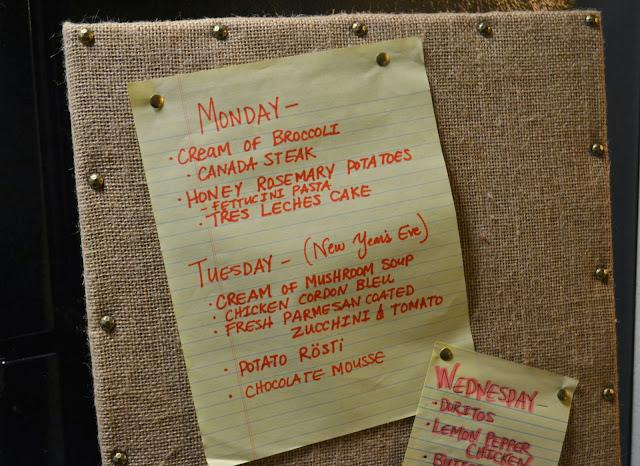 MONDAY-
• CREAM OF BROCCOLI
• CANADA STEAK
• HONEY ROSEMARY POTATOES
- FETTUCINI PASTA
• TRES LECHES CAKE
TUESDAY - (New Year's Eve)
• CREAM OF MUSHROOM SOUP
• CHICKEN CORDON BLEU
• FRESH PARMESAN COATED
ZUCCHINI & TOMATO
• POTATO RÖSTi
• CHOCOLATE MOUSSE
WEDNESDAY-
• DORITOS
• LEMON PEPPER
CHICKEN